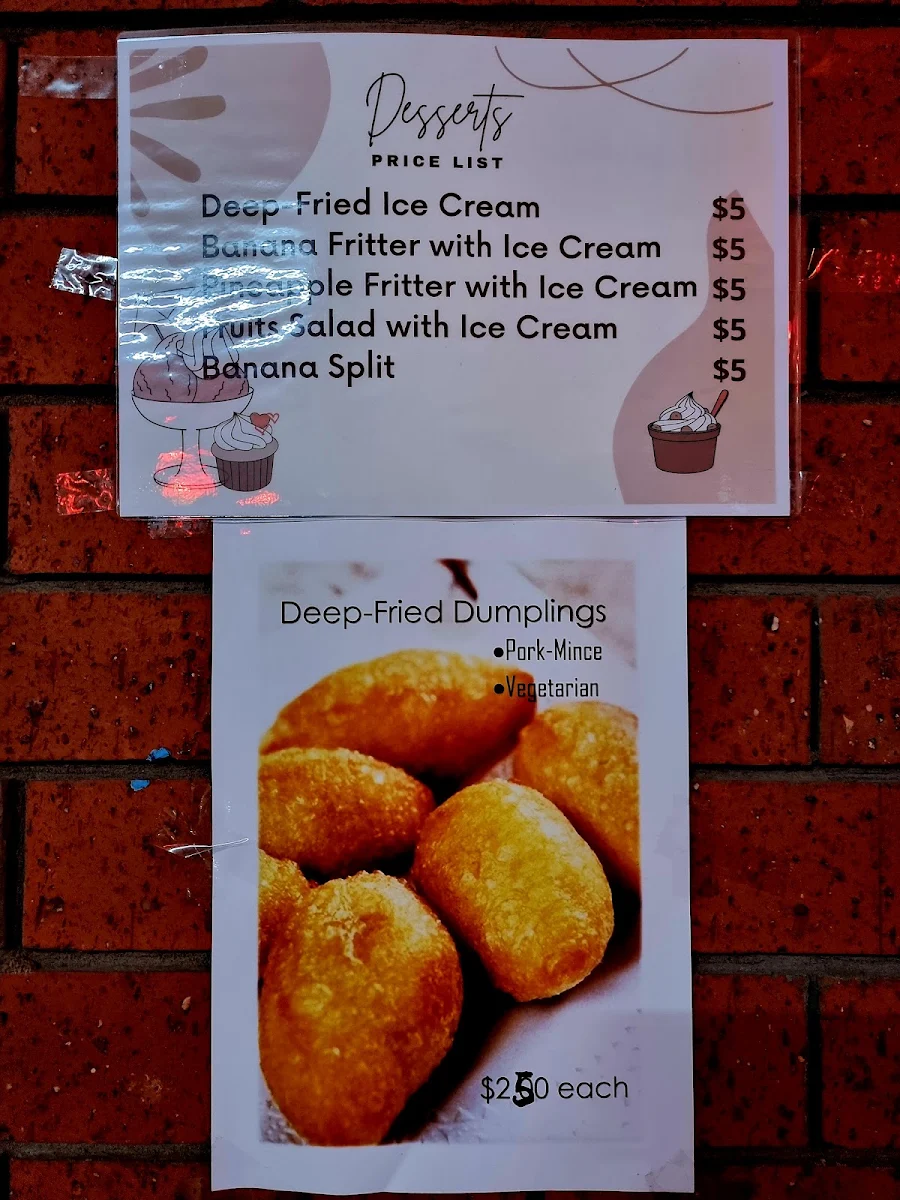 Desserts
PRICE LIST
Deep-Fried Ice Cream $5
Banana Fritter with Ice Cream $5
Pineapple Fritter with Ice Cream $5
Fruits Salad with Ice Cream $5
Banana Split $5
Deep-Fried Dumplings
•Pork-Mince
•Vegetarian
$250 each